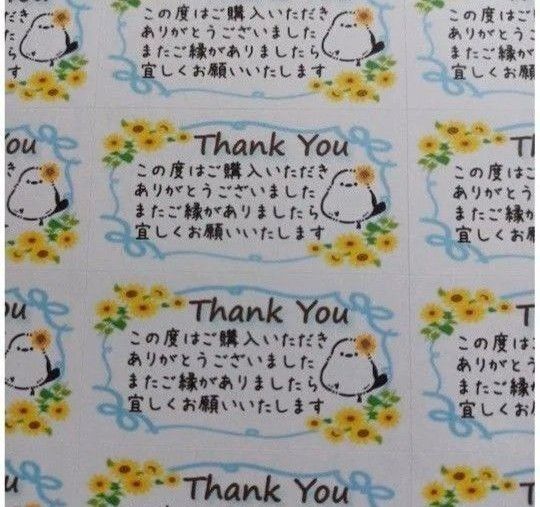 この度はご購入いただき
ありがとうございました
またご縁がありましたら
宜しくお願いいたします
この度はご
ありがとう
またご縁が
宜しくお
You
き
Thank You
この度はご購入いただき
ありがとうございました
またご縁がありましたら
宜しくお願いいたします
T
この度は
ありがとう
またご縁が
宜しくお
ou
Thank You
この度はご購入いただき
ありがとうございました
またご縁がありましたら
宜しくお願いいたします
T
この度は
ありがとう
またご縁が
宜しくお
u
Thank You
T